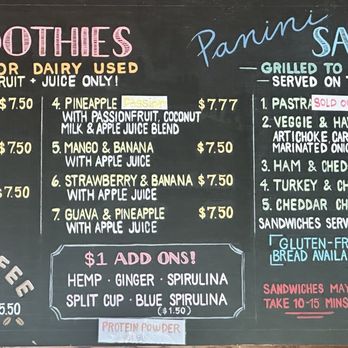 OOTHIES
OR DAIRY USED
FRUIT + JUICE ONLY!
$7.50
$7.50
4. PINEAPPLE Passion $7.77
WITH PASSIONFRUIT, COCONUT
MILK & APPLE JUICE BLEND
5. MANGO & BANANA $7.50
WITH APPLE JUICE
6. STRAWBERRY & BANANA $7.50
WITH APPLE JUICE
7. GUAVA & PINEAPPLE $7.50
WITH APPLE JUICE
$1 ADD ONS!
HEMP · GINGER · SPIRULINA
SPLIT CUP · BLUE SPIRULINA
($1.50)
PROTEIN POWDER
FEE
5.50
Panini SA
GRILLED TO
SERVED ON
1. PASTRA SOLD O
2. VEGGIE & HA
ARTICHOKE CAR
MARINATED ONIO
3. HAM & CHEDD
4. TURKEY & CH
5. CHEDDAR CH
SANDWICHES SERV
GLUTEN-FR
BREAD AVAILA
SANDWICHES MAY
TAKE 10-15 MINS